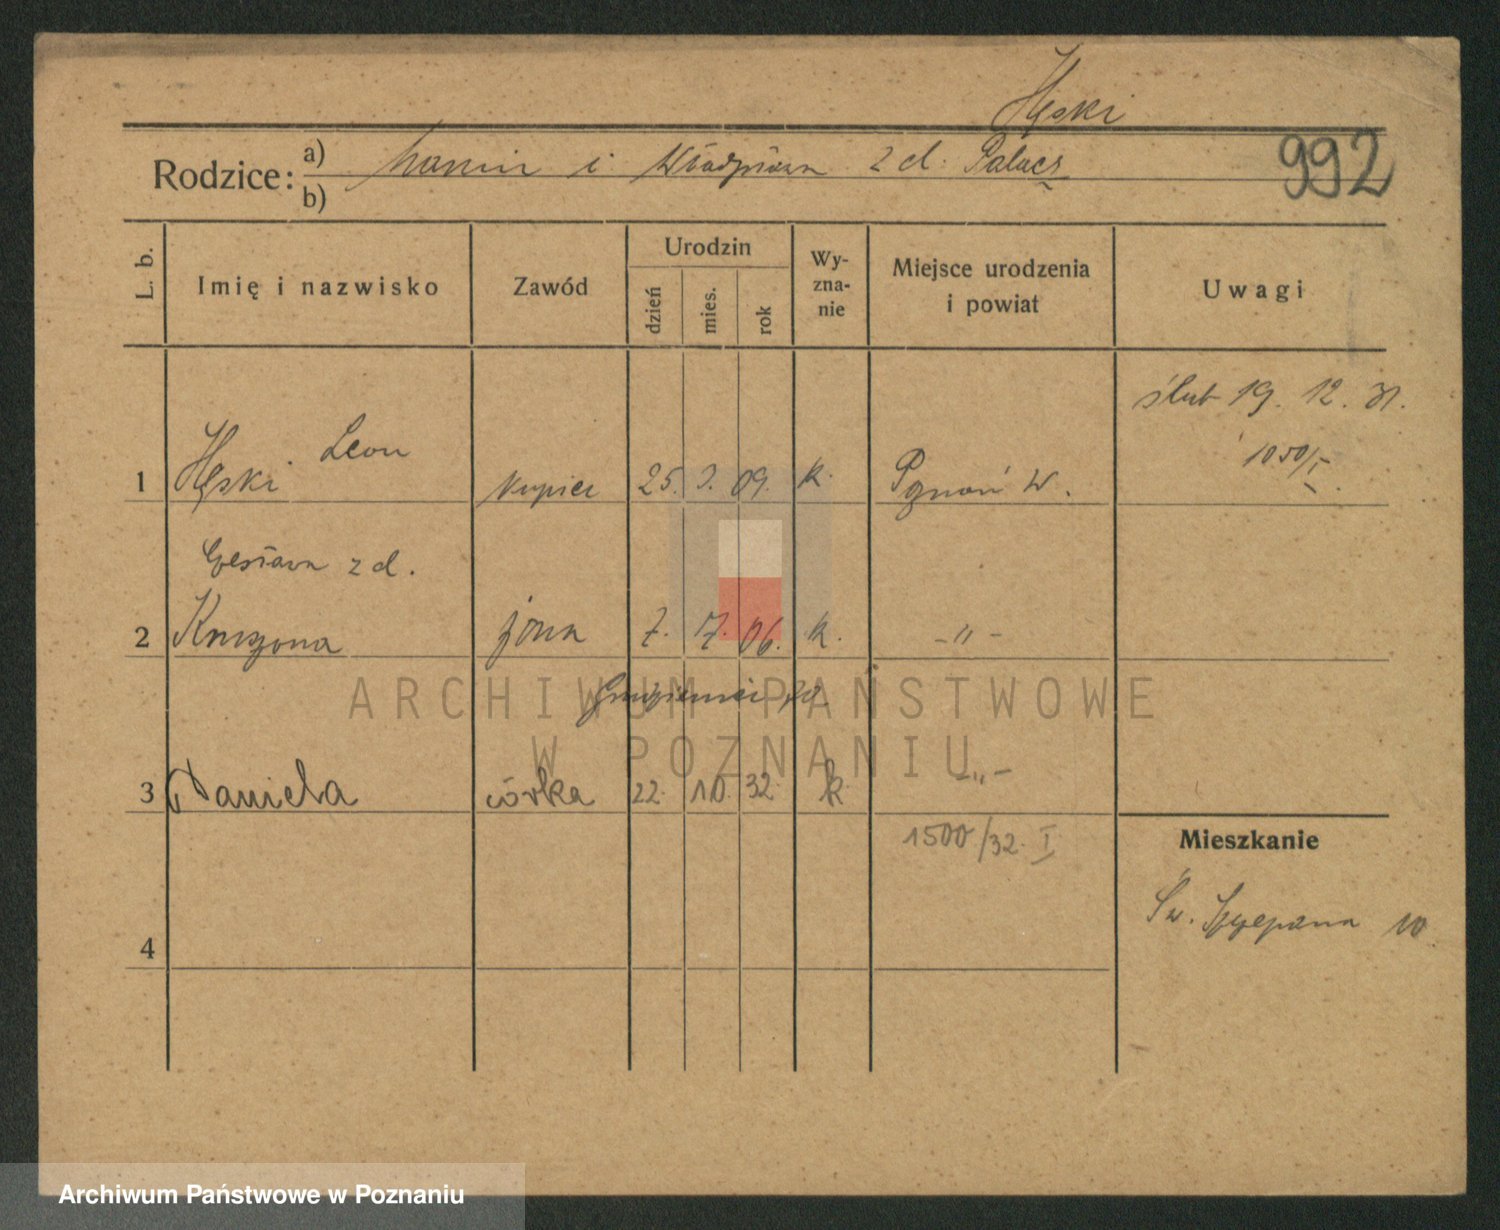 Hęski
Rodzice: a) i z d. Palacz 992
b)
L. b. Imię i nazwisko Zawód Urodzin dzień mies. rok Wy-zna-nie Miejsce urodzenia i powiat Uwagi
ślub 19. 12. 31.
1050/I
Leon
1 Hęski kupiec 25. 3. 09. k. Poznań W.
z d.
2 żona 7. 06. k. -"-
3 Daniela córka 22. 10. 32 k -"-
1500/32. I
Mieszkanie
Św. Szczepana 10
4
ARCHIWUM PAŃSTWOWE
W POZNANIU
Archiwum Państwowe w Poznaniu